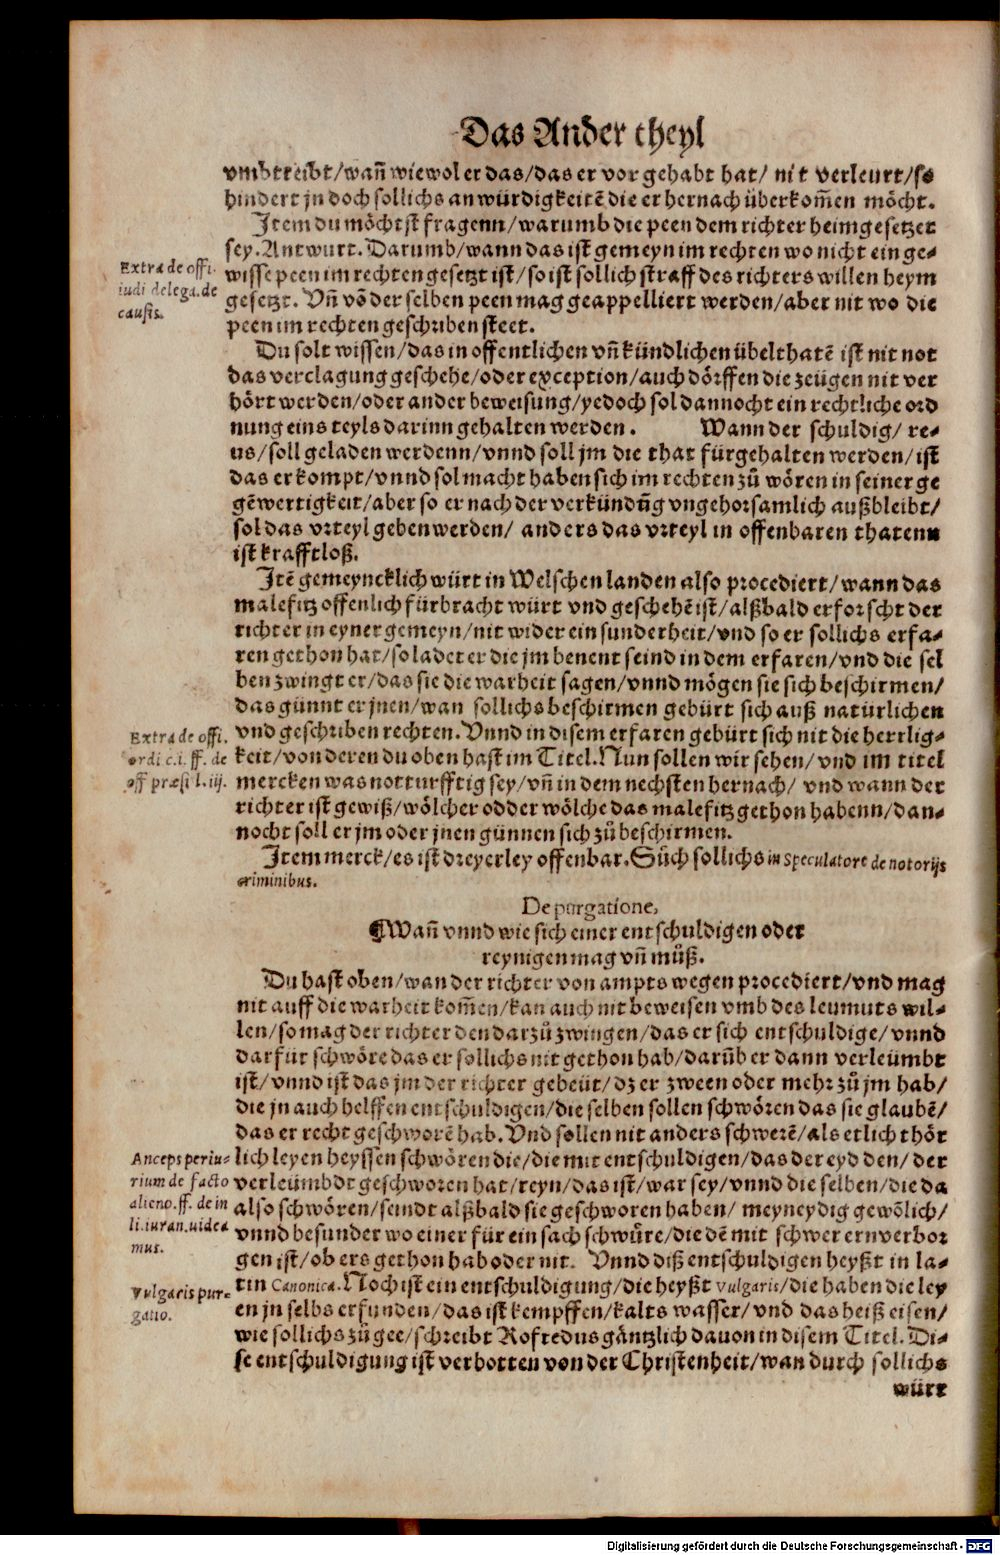 Das Ander theyl
vmbtreibt/wañ wiewol er das/das er vor gehabt hat/ nit verleurt/so
hindert jn doch sollichs an würdigkeitẽ die er hernach überkom̃en möcht.
Item du möchtst fragenn/warumb die peen dem richter heimgesetzet
sey. Antwurt. Darumb/wann das ist gemeyn im rechten wo nicht ein ge-
wisse peen im rechten gesetzt ist/so ist sollich straff des richters willen heym
gesetzt. Vñ võ der selben peen mag geappelliert werden/aber nit wo die
peen im rechten geschriben steet.
Extra de offi.
iudi delega. de
causis.
Du solt wissen/das in offentlichen vñ kündlichen übelthatẽ ist nit not
das verclagung geschehe/oder exception/auch dörffen die zeügen nit ver
hört werden/oder ander beweisung/yedoch sol dannocht ein rechtliche ord
nung eins teyls darinn gehalten werden. Wann der schuldig/ re-
us/soll geladen werdenn/vnnd soll jm die that fürgehalten werden/ist
das er kompt/vnnd sol macht haben sich im rechten zů wören in seiner ge
gẽwertigkeit/aber so er nach der verkündũg vngehorsamlich außbleibt/
sol das vrteyl geben werden/ anders das vrteyl in offenbaren thatenn
ist krafftloß.
Itẽ gemeyncklich würt in Welschen landen also procediert/wann das
malefitz offenlich fürbracht würt vnd geschehẽ ist/alßbald erforscht der
richter in eyner gemeyn/nit wider ein sunderheit/vnd so er sollichs erfa-
ren gethon hat/so ladet er die jm benent seind in dem erfaren/vnd die sel
ben zwingt er/das sie die warheit sagen/vnnd mögen sie sich beschirmen/
das günnt er jnen/wan sollichs beschirmen gebürt sich auß natürlichen
vnd geschriben rechten. Vnnd in disem erfaren gebürt sich nit die herrlig-
keit/von deren du oben hast im Titel. Nun sollen wir sehen/ vnd im titel
mercken was notturfftig sey/vñ in dem nechsten hernach/ vnd wann der
richter ist gewiß/wölcher odder wölche das malefitz gethon habenn/dan-
nocht soll er jm oder jnen günnen sich zů beschirmen.
Extra de offi.
ordi c.i. ff. de
off præsi l. iij.
Item merck/es ist dreyerley offenbar. Sůch sollichs in Speculatore de notorijs
criminibus.
De purgatione,
¶Wañ vnnd wie sich einer entschuldigen oder
reynigen mag vñ můß.
Du hast oben/wan der richter von ampts wegen procediert/vnd mag
nit auff die warheit kom̃en/kan auch nit beweisen vmb des leumuts wil-
len/so mag der richter den darzů zwingen/das er sich entschuldige/vnnd
darfür schwöre das er sollichs nit gethon hab/darüb er dann verleümbt
ist/vnnd ist das jm der richter gebeüt/dz er zween oder mehr zů jm hab/
die jn auch helffen entschuldigen/die selben sollen schwören das sie glaubẽ/
das er recht geschworẽ hab. Vnd sollen nit anders schwerẽ/als etlich thör
lich leyen heyssen schwören die/die mit entschuldigen/das der eyd den/der
verleümbdt geschworen hat/reyn/das ist/war sey/vnnd die selben/die da
also schwören/seindt alßbald sie geschworen haben/ meyneydig gewölich/
vnnd besunder wo einer für ein sach schwůre/die dẽ mit schwerern verbor
gen ist/ob ers gethon hab oder nit. Vnnd diß entschuldigen heyßt in la-
tin Canonica. Noch ist ein entschuldigung/die heyßt vulgaris/die haben die ley
en jn selbs erfunden/das ist kempffen/kalts wasser/vnd das heiß eisen/
wie sollichs zů gee/schreibt Rofredus gäntzlich dauon in disem Titel. Di-
se entschuldigung ist verbotten von der Christenheit/wan durch sollichs
würt
Anceps periu-
rium de facto
alieno. ff. de in
li. iuran. videa
mus.
Vulgaris pur-
gatio.
Digitalisierung gefördert durch die Deutsche Forschungsgemeinschaft - DFG